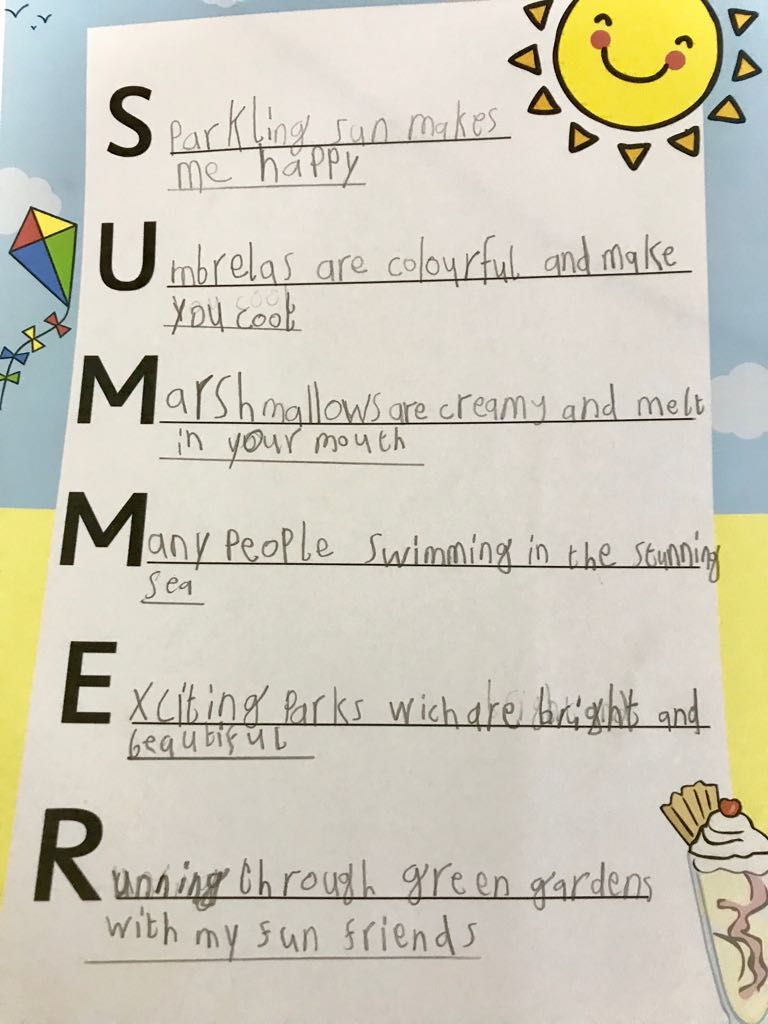 Sparkling sun makes
me happy
Umbrelas are colourful and make
you cool
Marshmallows are creamy and melt
in your mouth
Many people swimming in the stunning
sea
Exciting parks wich are bright and
beautiful
Running through green gardens
with my fun friends